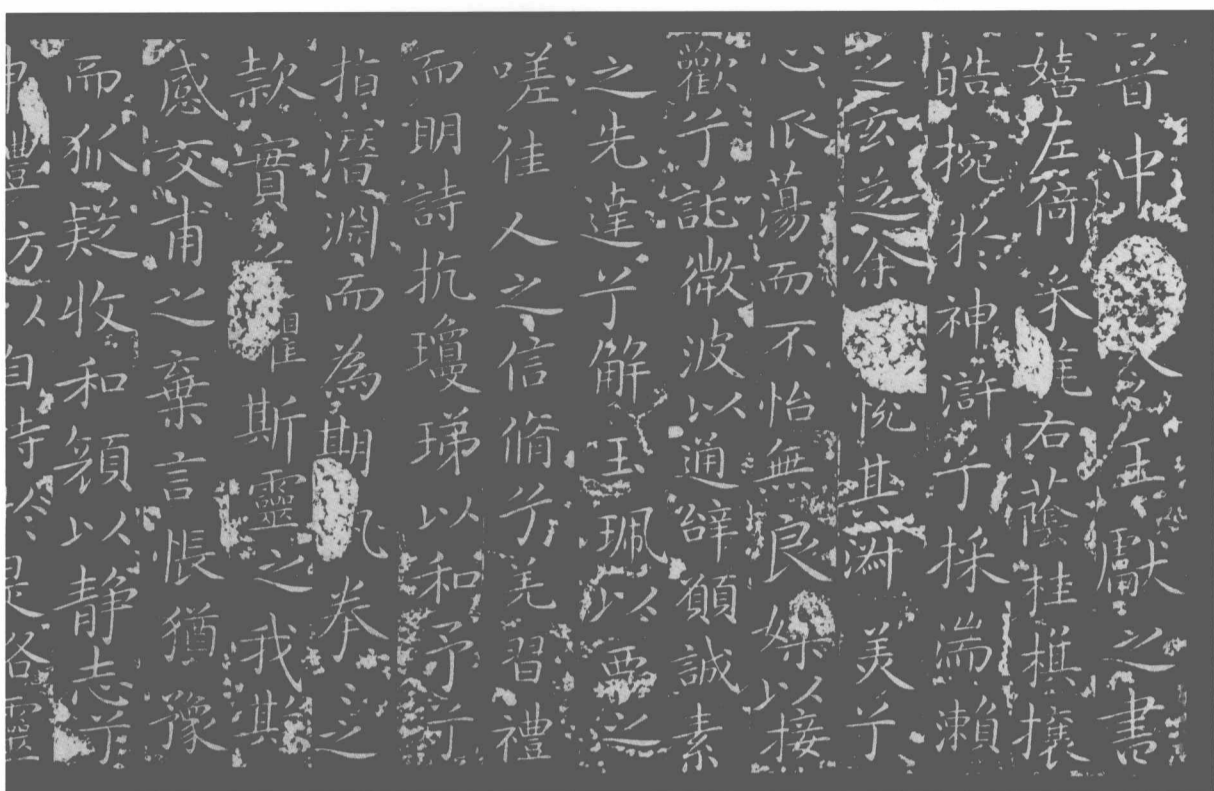 晉中令王獻之書
嬉左倚采旄右蔭桂棋攘
皓捥於神滸兮採湍瀨
之玄芝余悅其淑美兮
心而蕩而不怡無良媒以接
歡兮託微波以通辭願誠素
之先達兮解玉珮以要之
嗟佳人之信脩兮羌習禮
而明詩抗瓊珶以和予兮
指潛淵而為期執拳之
款實懼斯靈之我欺
感交甫之棄言悵猶豫
而狐疑收和顏以靜志兮
申禮方以自持於是洛靈